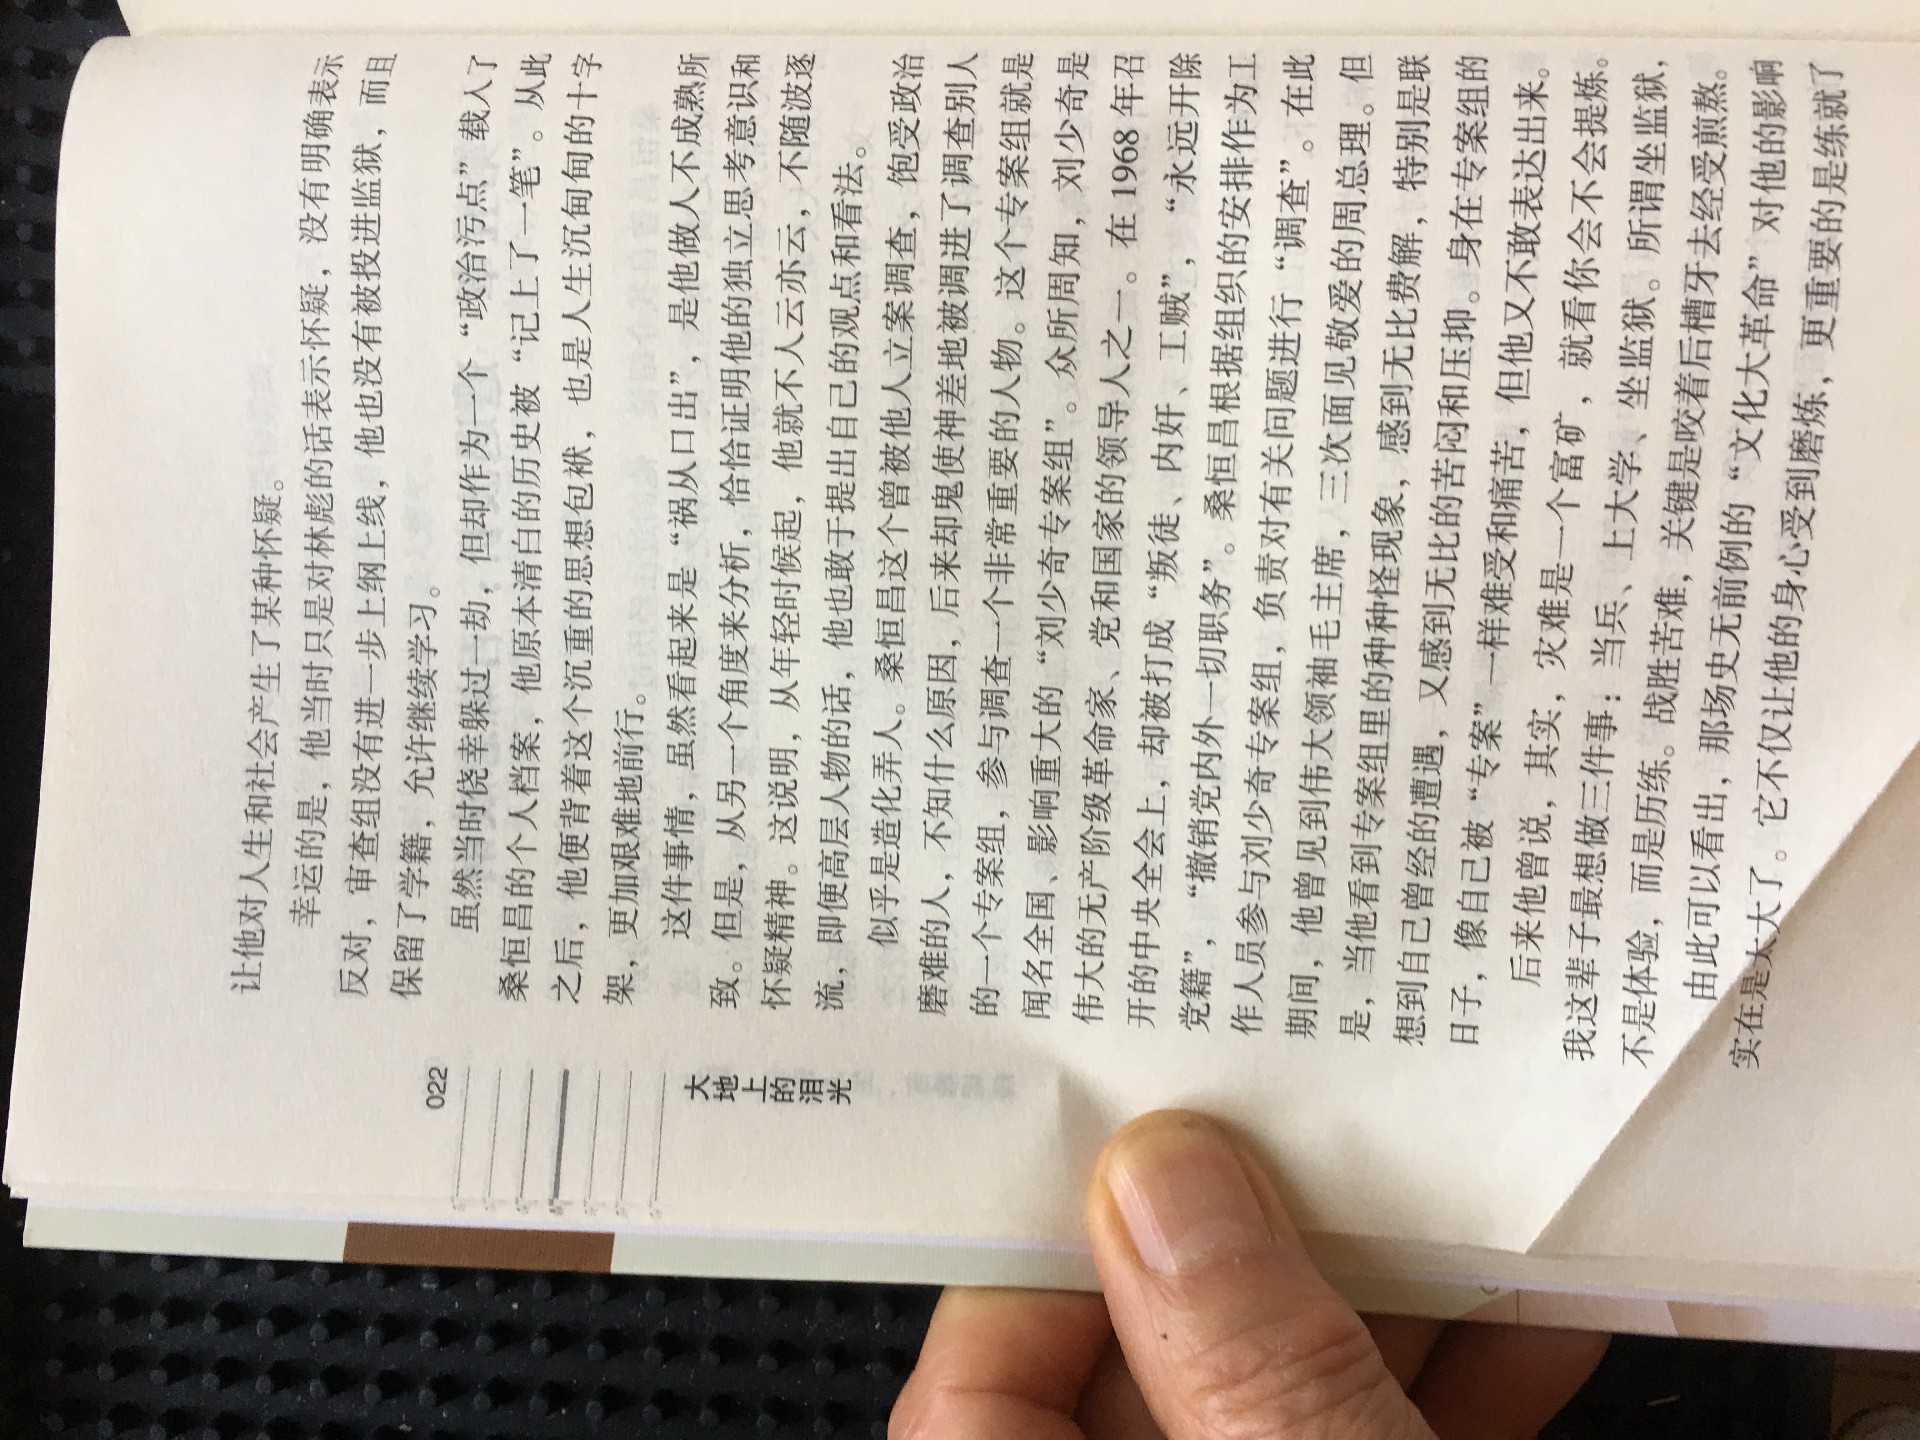 让他对人生和社会产生了某种怀疑。
幸运的是，他当时只是对林彪的话表示怀疑，没有明确表示
反对，审查组没有进一步上纲上线，他也没有被投进监狱，而且
保留了学籍，允许继续学习。
虽然当时侥幸躲过一劫，但却作为一个“政治污点”载入了
桑恒昌的个人档案，他原本清白的历史被“记上了一笔”。从此
之后，他便背着这个沉重的思想包袱，也是人生沉甸甸的十字
架，更加艰难地前行。
这件事情，虽然看起来是“祸从口出”，是他做人不成熟所
致。但是，从另一个角度来分析，恰恰证明他的独立思考意识和
怀疑精神。这说明，从年轻时候起，他就不人云亦云，不随波逐
流，即便高层人物的话，他也敢于提出自己的观点和看法。
似乎是造化弄人。桑恒昌这个曾被他人立案调查，饱受政治
磨难的人，不知什么原因，后来却鬼使神差地被调进了调查别人
的一个专案组，参与调查一个非常重要的人物。这个专案组就是
闻名全国、影响重大的“刘少奇专案组”。众所周知，刘少奇是
伟大的无产阶级革命家、党和国家的领导人之一。在 1968 年召
开的中央全会上，却被打成“叛徒、内奸、工贼”，“永远开除
党籍”，“撤销党内外一切职务”。桑恒昌根据组织的安排作为工
作人员参与刘少奇专案组，负责对有关问题进行“调查”。在此
期间，他曾见到伟大领袖毛主席，三次面见敬爱的周总理。但
是，当他看到专案组里的种种怪现象，感到无比费解，特别是联
想到自己曾经的遭遇，又感到无比的苦闷和压抑。身在专案组的
日子，像自己被“专案”一样难受和痛苦，但他又不敢表达出来。
后来他曾说，其实，灾难是一个富矿，就看你会不会提炼。
我这辈子最想做三件事：当兵、上大学、坐监狱。所谓坐监狱，
不是体验，而是历练。战胜苦难，关键是咬着后槽牙去经受煎熬。
由此可以看出，那场史无前例的“文化大革命”对他的影响
实在是太大了。它不仅让他的身心受到磨炼，更重要的是练就了
022
大地上的泪光